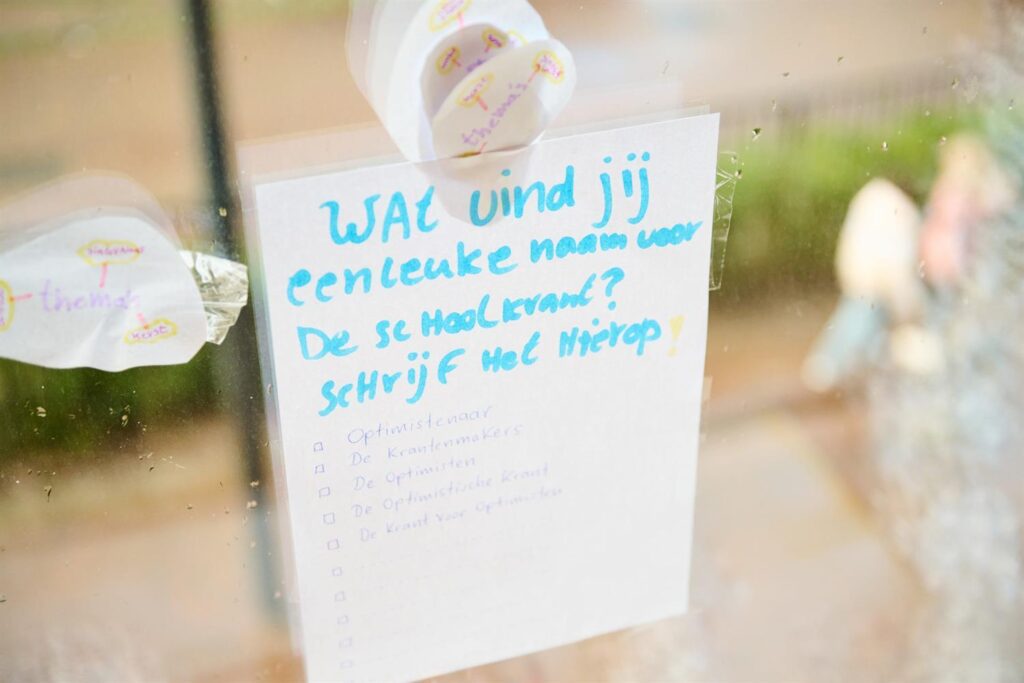 thema's
thema's
kerst
WAt vind jij
een leuke naam voor
De scHoolkrant?
scHrijf Het Hierop!
Optimistenaar
De Krantenmakers
De Optimisten
De Optimistische Krant
De Krant voor Optimisten